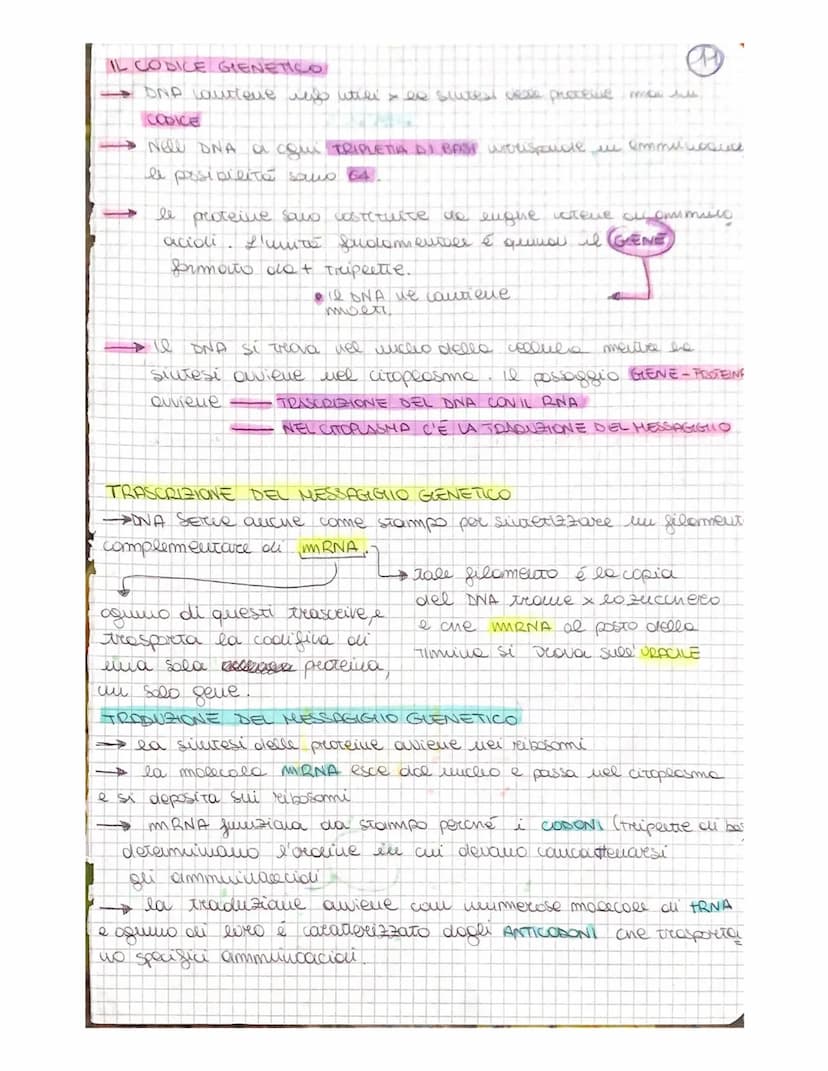 11
IL CODICE GENETICO
→ DNA contiene info utili x la sintesi delle proteine ma in
CODICE
→ Nell DNA a ogni TRIPLETTA DI BASI corrisponde un amminoacido
le possibilità sono 64.
→ le proteine sono costituite da lunghe catene di ammino
acidi. L'unità fondamentale è quindi il GENE
formato da + triplette.
• il DNA ne contiene
molti.
→ Il DNA si trova nel nucleo della cellula mentre la
sintesi avviene nel citoplasma. Il passaggio GENE-PROTEINA
avviene — TRASCRIZIONE DEL DNA CON IL RNA
— NEL CITOPLASMA C'È LA TRADUZIONE DEL MESSAGGIO
TRASCRIZIONE DEL MESSAGGIO GENETICO
→ DNA serve anche come stampo per sintetizzare un filament
complementare di mRNA.
→ Tale filamento è la copia
del DNA tranne x lo zucchero
e che mRNA al posto della
Timina si trova sull'URACILE
ognuno di questi trascrive, e
trasporta la codifica di
una sola proteina,
un solo gene.
TRADUZIONE DEL MESSAGGIO GENETICO
→ la sintesi delle proteine avviene nei ribosomi
→ la molecola mRNA esce dal nucleo e passa nel citoplasma
e si deposita sui ribosomi
→ mRNA funziona da stampo perché i CODONI (triplette di bas
determinano l'ordine in cui devono concattenarsi
gli amminoacidi
→ la traduzione avviene con numerose molecole di tRNA
e ognuno di loro è caratterizzato dagli ANTICODONI che trasporta
no specifici amminoacidi.